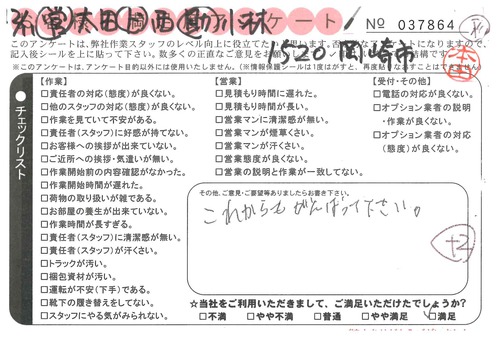 アンケート
No 037864
1520 岡崎市
このアンケートは、弊社作業スタッフのレベル向上に役立てたい
記入後シールを上に貼って下さい。数多くの正直なご意見をお
※このアンケートは、アンケート目的以外には使用いたしません。(※情報保護シールは1度はがすと、再度貼
チェックリスト
【作業】
□責任者の対応(態度)が良くない。
□他のスタッフの対応(態度)が良くない。
□作業を見ていて不安がある。
□責任者(スタッフ)に好感が持てない。
□お客様への挨拶が出来ていない。
□ご近所への挨拶・気遣いが無い。
□作業開始前の内容確認がなかった。
□作業開始時間が遅れた。
□荷物の取り扱いが雑である。
□お部屋の養生が出来ていない。
□作業時間が長すぎる。
□責任者(スタッフ)に清潔感が無い。
□責任者(スタッフ)が汗くさい。
□トラックが汚い。
□梱包資材が汚い。
□運転が不安(下手)である。
□靴下の履き替えをしてない。
□スタッフにやる気がみられない。
【営業】
□見積もり時間に遅れた。
□見積もり時間が長い。
□営業マンに清潔感が無い。
□営業マンが煙草くさい。
□営業マンが汗くさい。
□営業態度が良くない。
□営業の説明と作業が一致してない。
【受付・その他】
□電話の対応が良くない。
□オプション業者の説明
・作業が良くない。
□オプション業者の対応
(態度)が良くない。
その他、ご意見・ご要望等ありましたらお書き下さい。
これからもがんばって下さい。
+2
☆当社をご利用いただきまして、ご満足いただけたでしょうか?
□不満 □やや不満 □普通 □やや満足 □満足